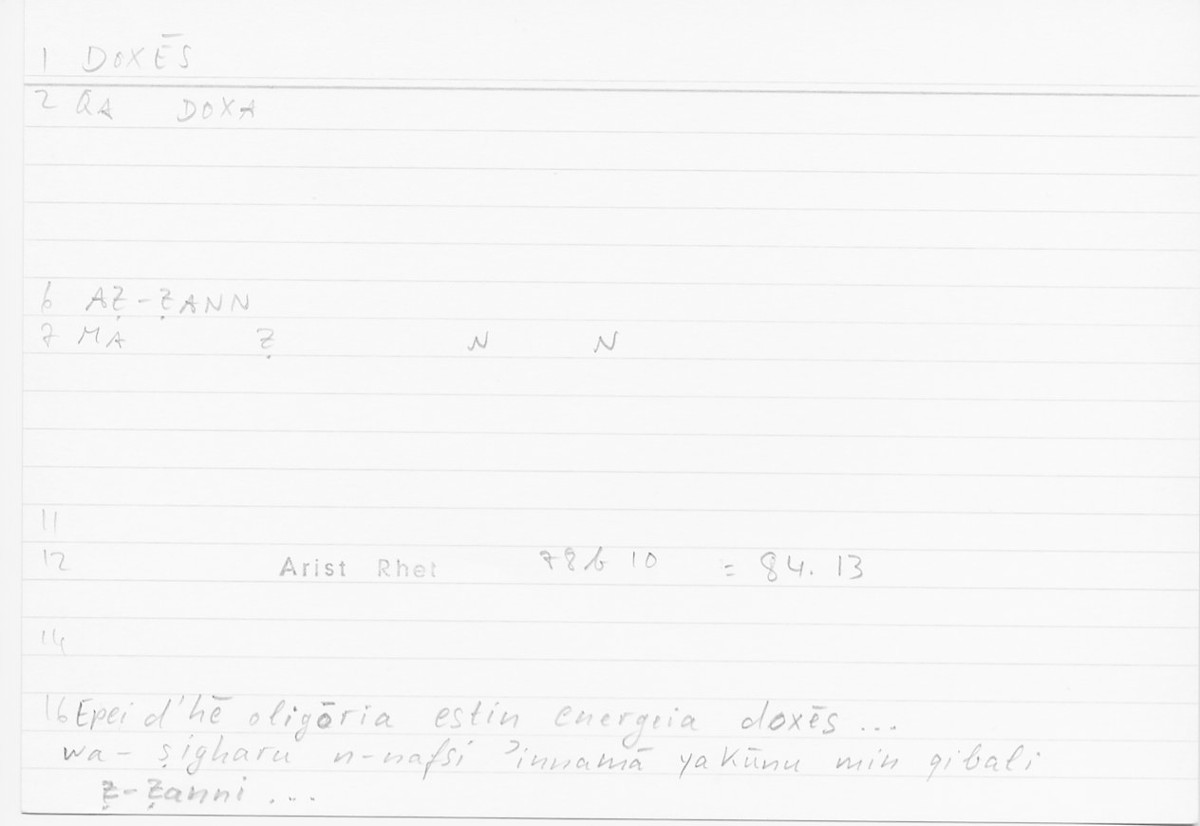 1 DOXĒS
2 QA DOXA
6 AẒ-ẒANN
7 MA Ẓ N N
11
12 Arist Rhet 78b 10 = 84. 13
14
16 Epei d'hē oligōria estin energeia doxēs ...
wa- ṣigharu n-nafsi ʾinnamā yakūnu min qibali
ẓ-Ẓanni ...